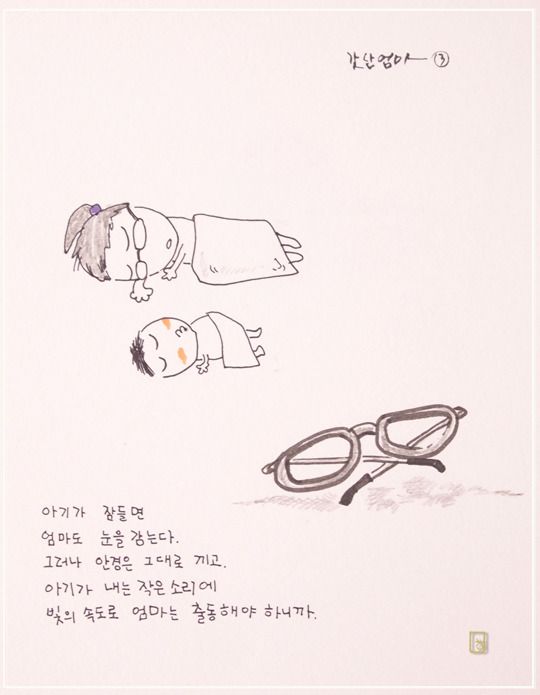 갓난엄마 ③
아기가 잠들면
엄마도 눈을 감는다.
그러나 안경은 그대로 끼고.
아기가 내는 작은 소리에
빛의 속도로 엄마는 출동해야 하니까.